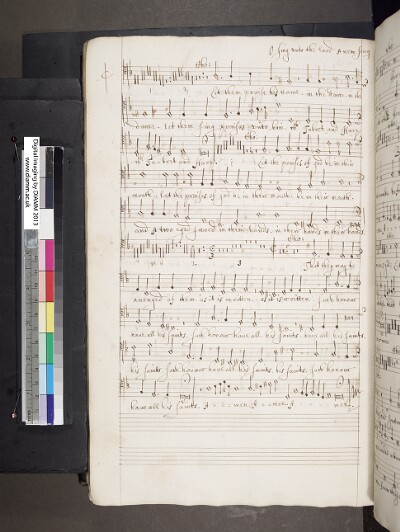 O sing unto the Lord A new song
Cho:
Let them praise his Name in the Name in the
dance. Let them sing prayses unto him with Tabret and Harp
with Tabret and Harp. Let the prayses of god be in their
mouth. Let the prayses of god be in their mouth be in their mouth.
and A two edged sword in their hands, in their hands in their hands.
Cho:
1 2 3
That they may be
avenged of them as it is written, as it is written. Such honour
have all his Saints. Such honour have all his Saints. have all his Saints
his Saints. Such honour have all his Saints. his Saints. Such honour
have all his Saints. A - men A - men A men.
Digital imaging by DIAMM 2013
www.diamm.ac.uk